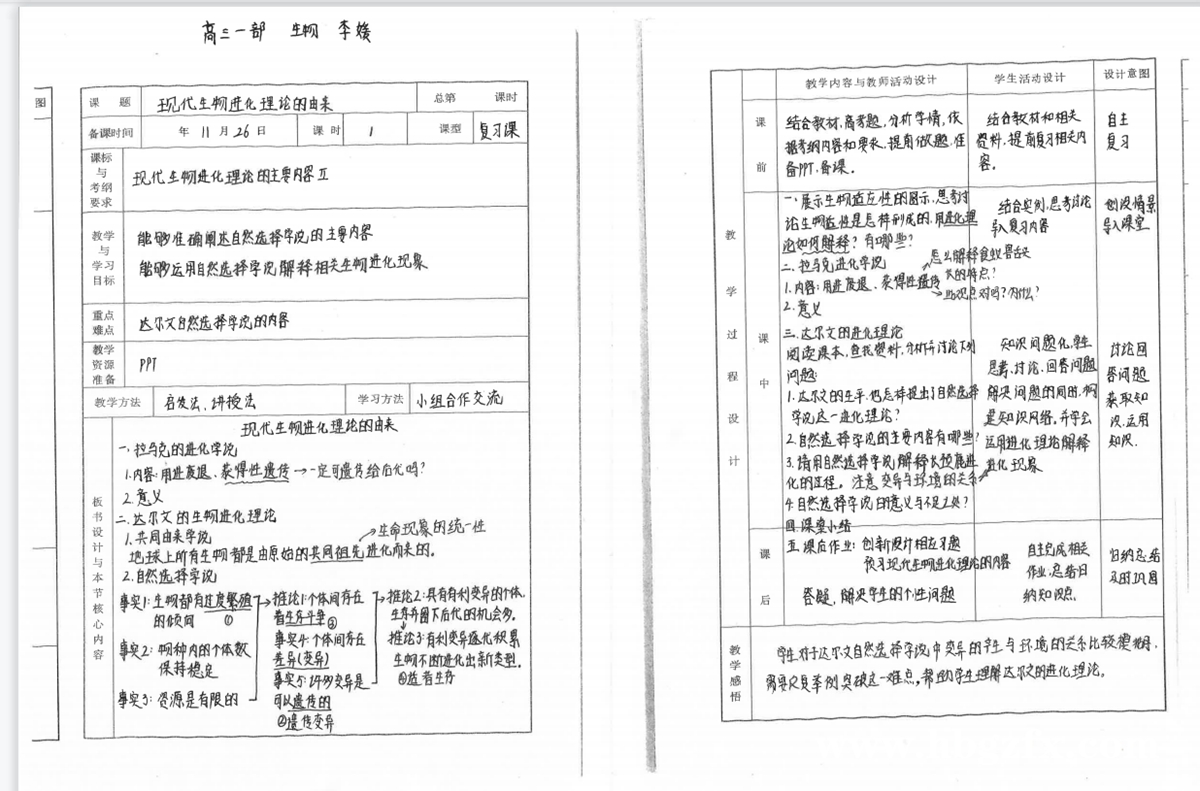 高三一部 生物 李媛
图
课题 现代生物进化理论的由来 总第 课时
备课时间 年 11 月 26 日 课时 1 课型 复习课
课标与考纲要求 现代生物进化理论的主要内容 Ⅱ
教学与学习目标 能够准确阐述自然选择学说的主要内容
能够运用自然选择学说解释相关生物进化现象
重点难点 达尔文自然选择学说的内容
教学资源准备 PPT
教学方法 启发法、讲授法 学习方法 小组合作交流
板书设计与本节核心内容
现代生物进化理论的由来
一、拉马克的进化学说
1.内容:用进废退、获得性遗传→一定可遗传给后代吗?
2.意义
二、达尔文的生物进化理论
1.共同由来学说 →生命现象的统一性
地球上所有生物都是由原始的共同祖先进化而来的。
2.自然选择学说
事实1:生物都有过度繁殖的倾向 ①
事实2:物种内的个体数保持稳定
事实3:资源是有限的
推论1:个体间存在着生存斗争②
事实4:个体间存在差异(变异)
事实5:许多变异是可以遗传的
③遗传变异
推论2:具有有利变异的个体,生存并留下后代的机会多。
推论3:有利变异逐代积累生物不断进化出新类型。
④适者生存
教学内容与教师活动设计 学生活动设计 设计意图
教学过程设计
课前
结合教材,高考题,分析学情,依
据考纲内容和要求,提前做题,准
备PPT,备课。
结合教材和相关
资料,提前复习相关内
容。
自主
复习
课中
一、展示生物适应性的图示,思考讨
论生物适性是怎样形成的,用进化理
论如何解释?有哪些?
二、拉马克进化学说 怎么解释食蚁兽舌头
长的特点?
1.内容:用进废退、获得性遗传 →此观点对吗?为什么?
2.意义
三、达尔文的进化理论
阅读课本,查找资料,分析并讨论下列
问题:
1.达尔文的生平,他怎样提出了自然选择
学说这一进化理论?
2.自然选择学说的主要内容有哪些?
3.请用自然选择学说解释长颈鹿进
化的过程。注意变异与环境的关系
4.自然选择学说的意义与不足之处?
四、课堂小结
结合实例,思考讨论
导入复习内容
知识问题化,学生
思考、讨论、回答问题
解决问题的同时,构
建知识网络,并学会
运用进化理论解释
进化现象
创设情景
导入课堂
讨论回
答问题
获取知
识,运用
知识.
课后
五、课后作业:创新设计相应习题
预习现代生物进化理论的内容
答疑,解决学生的个性问题
自主完成相关
作业,总结归
纳知识点
归纳总结
及时巩固
教学感悟
学生对于达尔文自然选择学说中变异的产生与环境的关系比较模糊,
需要反复举例突破这一难点,帮助学生理解达尔文的进化理论。